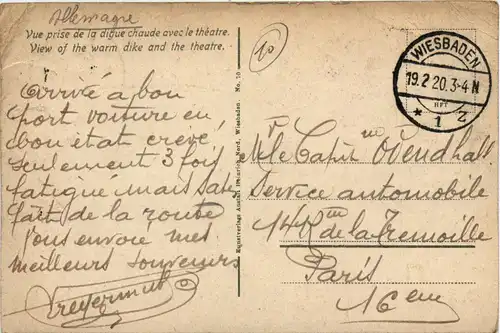 Allemagne
Vue prise de la digue chaude avec le théatre.
View of the warm dike and the theatre.
10
WIESBADEN
19.2 20.3-4 N
* 1 z
Arrivé a bon
port voiture en
bon état crevé
seulement 3 fois
fatigué mais satis
fait de la route
vous envoie mes
meilleurs souvenirs
Kunstverlag No. 10
Mr le Capitne
Service automobile
14 R de la Tremoille
Paris
16 eme